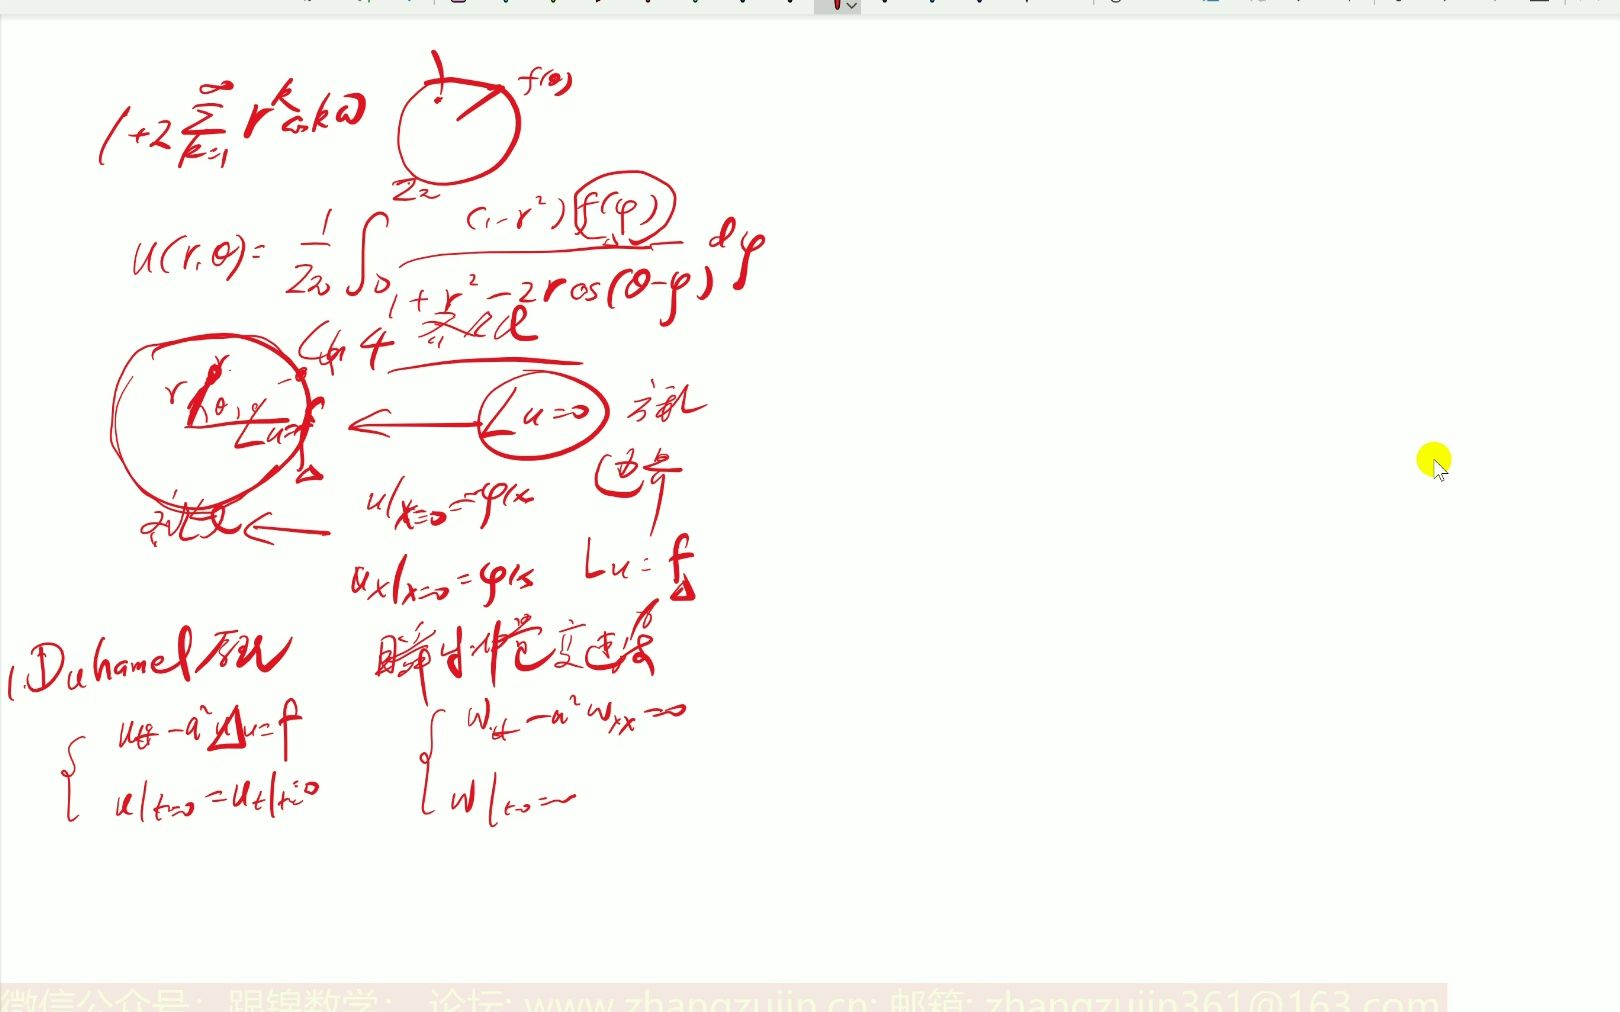 1+2∑_{k=1}^{∞} r^k cos kω
f(θ)
u(r,θ)= 1/2π ∫_0^{2π} (1-r²)f(φ) / 1+r²-2rcos(θ-φ) dφ
Ch4
r
θ
Lu=f
Lu=0
方法
u|x=0=φ(x
ux|x=0=φ(x
Lu=f
1.Duhamel原理
瞬时冲量变速度
utt-a²Δu=f
wtt-a²wxx=0
u|t=0=ut|t=0
w|t=0=
微信公众号: 跟锦数学; 论坛: www.zhangzujin.cn; 邮箱: zhangzujin361@163.com